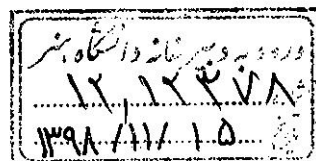 ورود به دبیرخانه دانشگاه هنر
۱۲,۱۲۳۷۸
۱۳۹۸/۱۱/۱۵